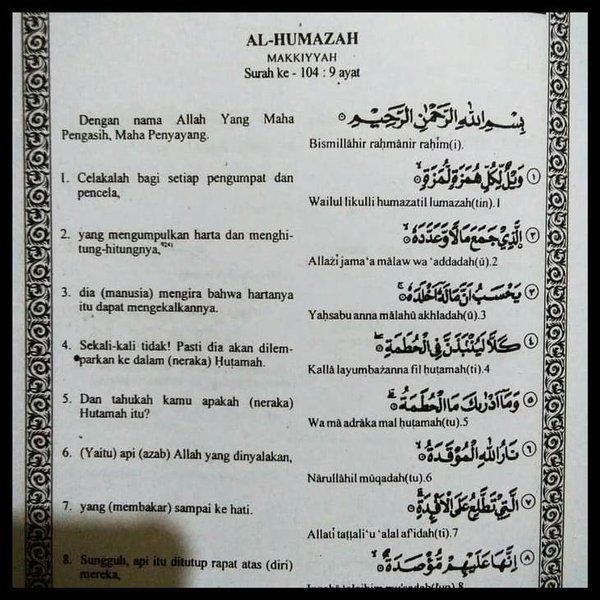 AL-HUMAZAH
MAKKIYYAH
Surah ke - 104 : 9 ayat
Dengan nama Allah Yang Maha
Pengasih, Maha Penyayang.
بِسْمِ اللّٰهِ الرَّحْمٰنِ الرَّحِيْمِ
Bismillāhir raḥmānir raḥīm(i).
1. Celakalah bagi setiap pengumpat dan
pencela,
وَيْلٌ لِّكُلِّ هُمَزَةٍ لُّمَزَةٍ ۙ ١
Wailul likulli humazatil lumazah(tin).1
2. yang mengumpulkan harta dan menghi-
tung-hitungnya,
الَّذِيْ جَمَعَ مَالًا وَّعَدَّدَهٗ ۙ ٢
Allażī jama‘a mālaw wa ‘addadah(ū).2
3. dia (manusia) mengira bahwa hartanya
itu dapat mengekalkannya.
يَحْسَبُ اَنَّ مَالَهٗٓ اَخْلَدَهٗ ۚ ٣
Yaḥsabu anna mālahū akhladah(ū).3
4. Sekali-kali tidak! Pasti dia akan dilem-
parkan ke dalam (neraka) Ḥuṭamah.
كَلَّا لَيُنْۢبَذَنَّ فِى الْحُطَمَةِ ۖ ٤
Kallā layumbażanna fil ḥuṭamah(ti).4
5. Dan tahukah kamu apakah (neraka)
Hutamah itu?
وَمَآ اَدْرٰىكَ مَا الْحُطَمَةُ ۗ ٥
Wa mā adrāka mal ḥuṭamah(tu).5
6. (Yaitu) api (azab) Allah yang dinyalakan,
نَارُ اللّٰهِ الْمُوْقَدَةُ ۙ ٦
Nārullāhil mūqadah(tu).6
7. yang (membakar) sampai ke hati.
الَّتِيْ تَطَّلِعُ عَلَى الْاَفْـِٕدَةِ ۗ ٧
Allatī taṭṭali‘u ‘alal af'idah(ti).7
8. Sungguh, api itu ditutup rapat atas (diri)
mereka,
اِنَّهَا عَلَيْهِمْ مُّؤْصَدَةٌ ۙ ٨